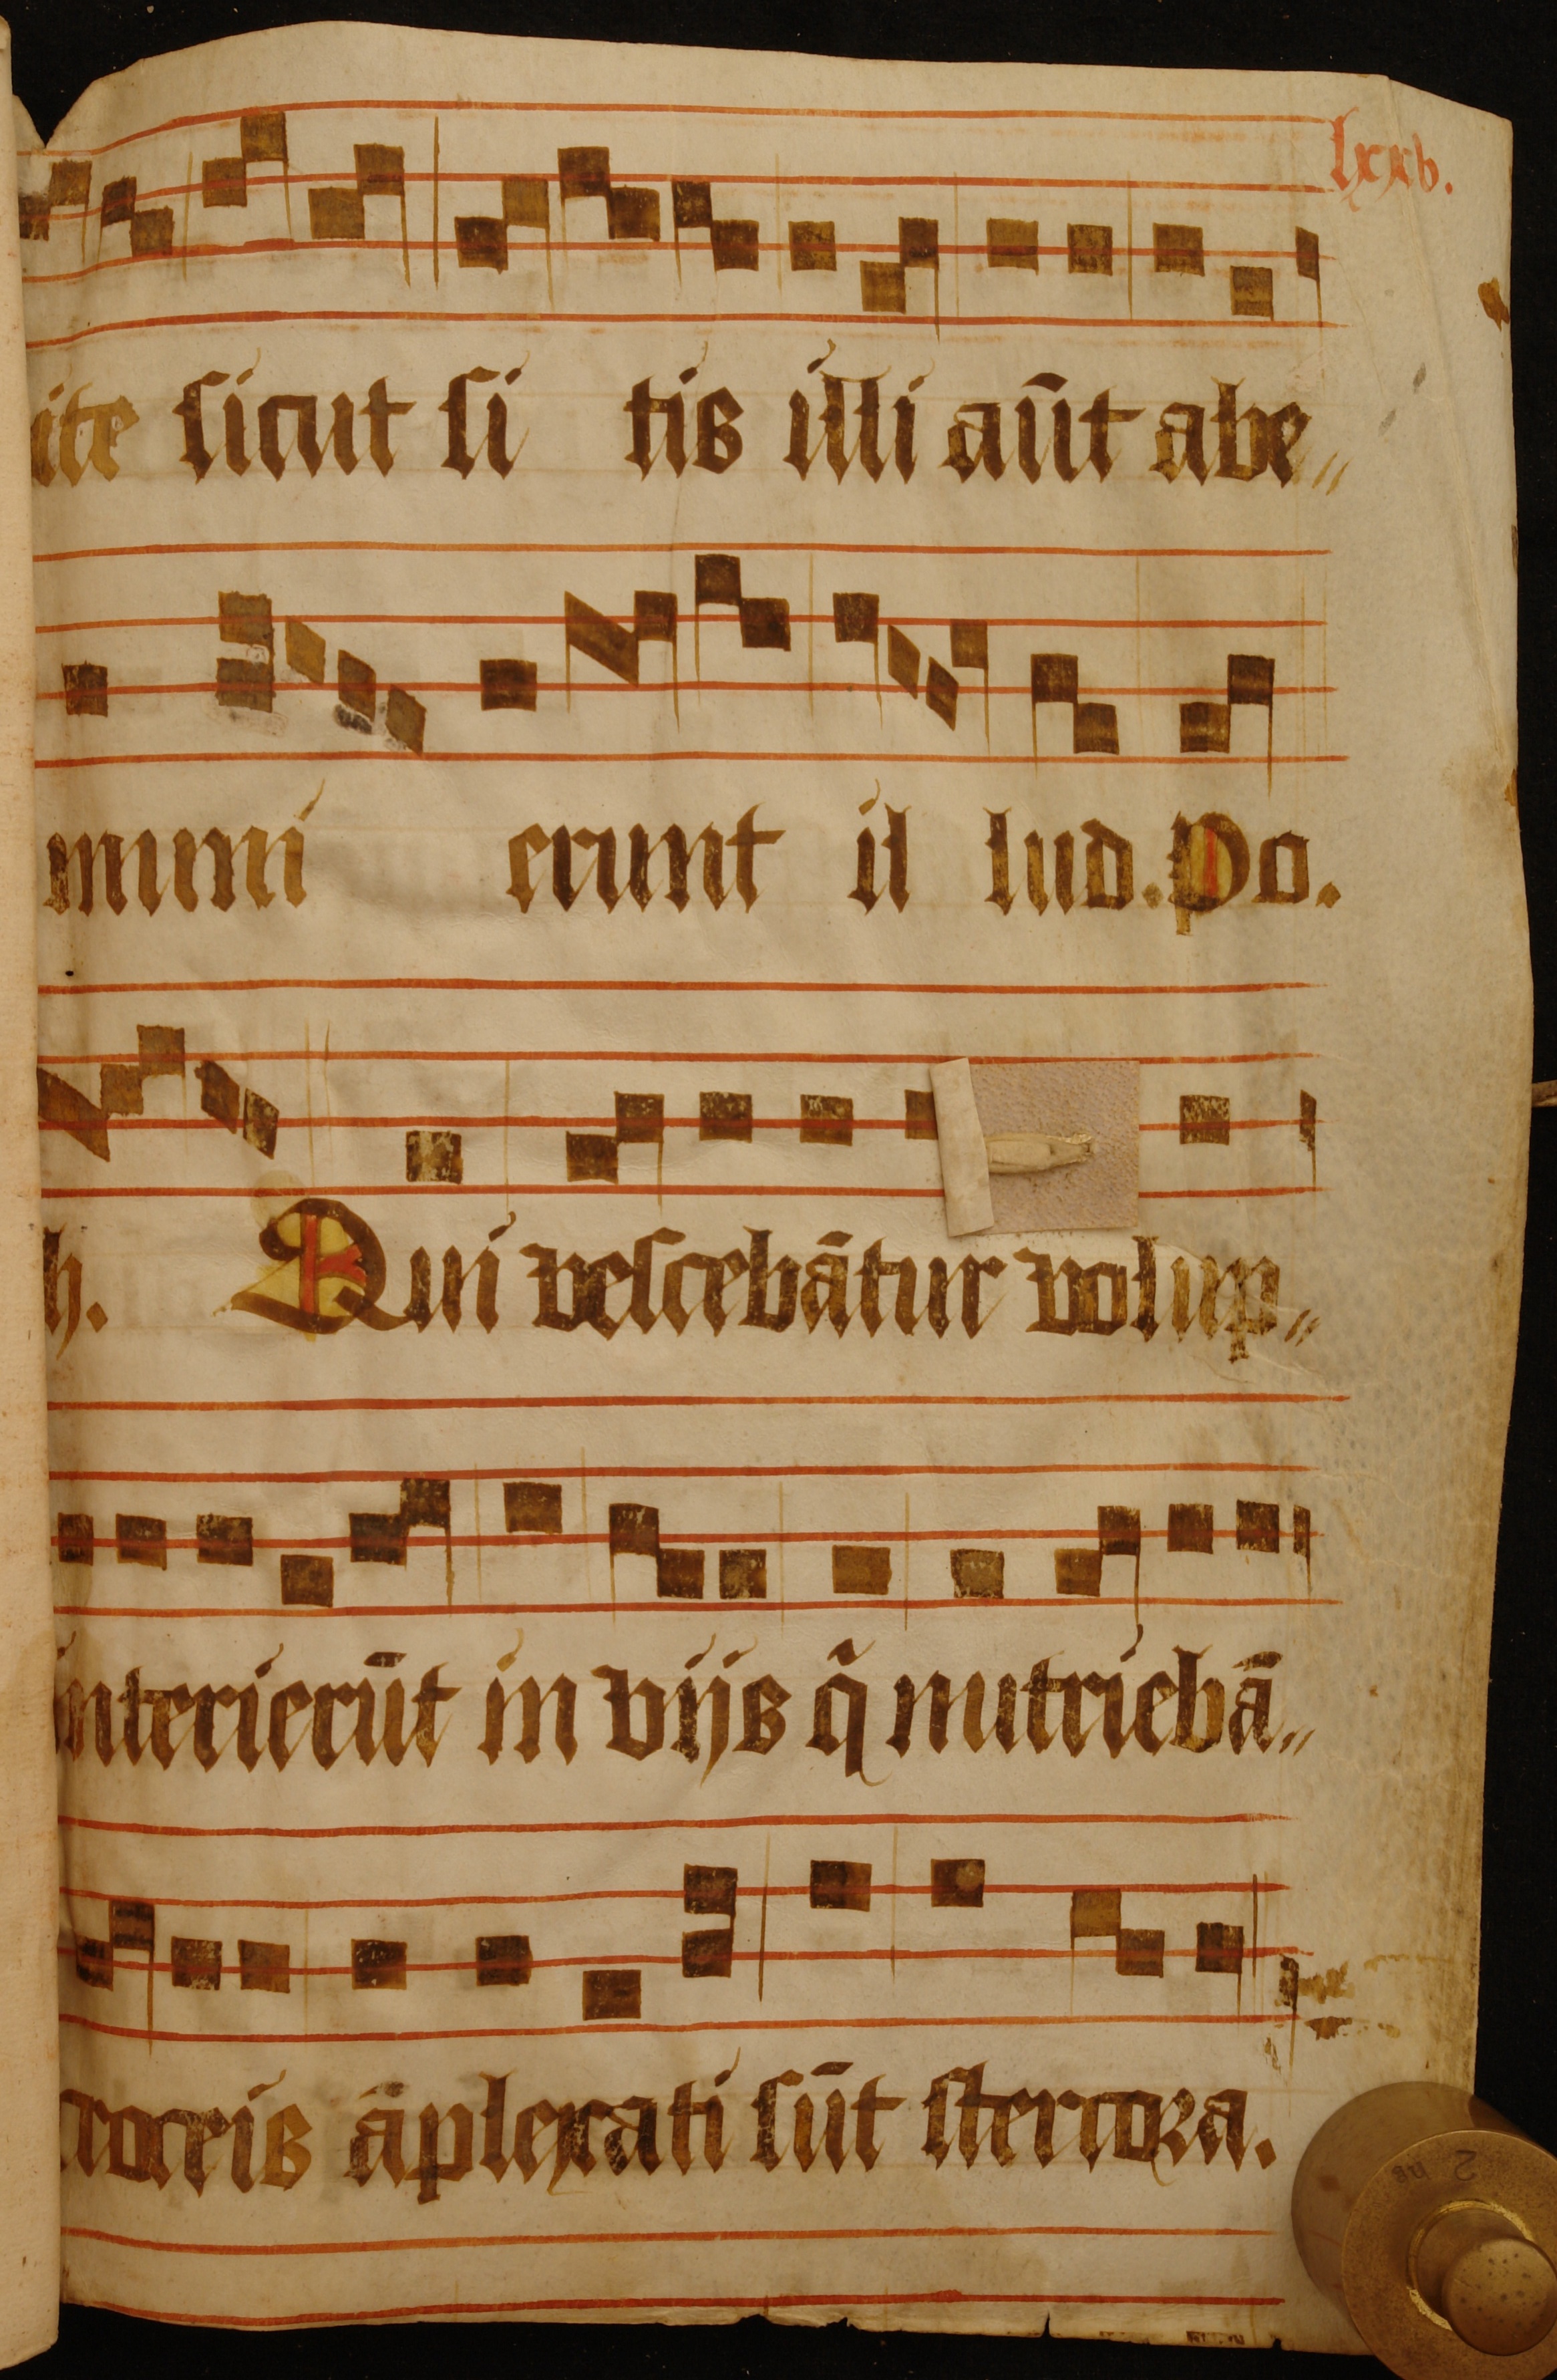 lxxv.
ite sicut si tis illi aūt abe„
mini erunt il lud. Po.
h. Qui vescebātur volup„
interierūt in vijs q̄ nutriebā„
croceis āplexati sūt stercora.